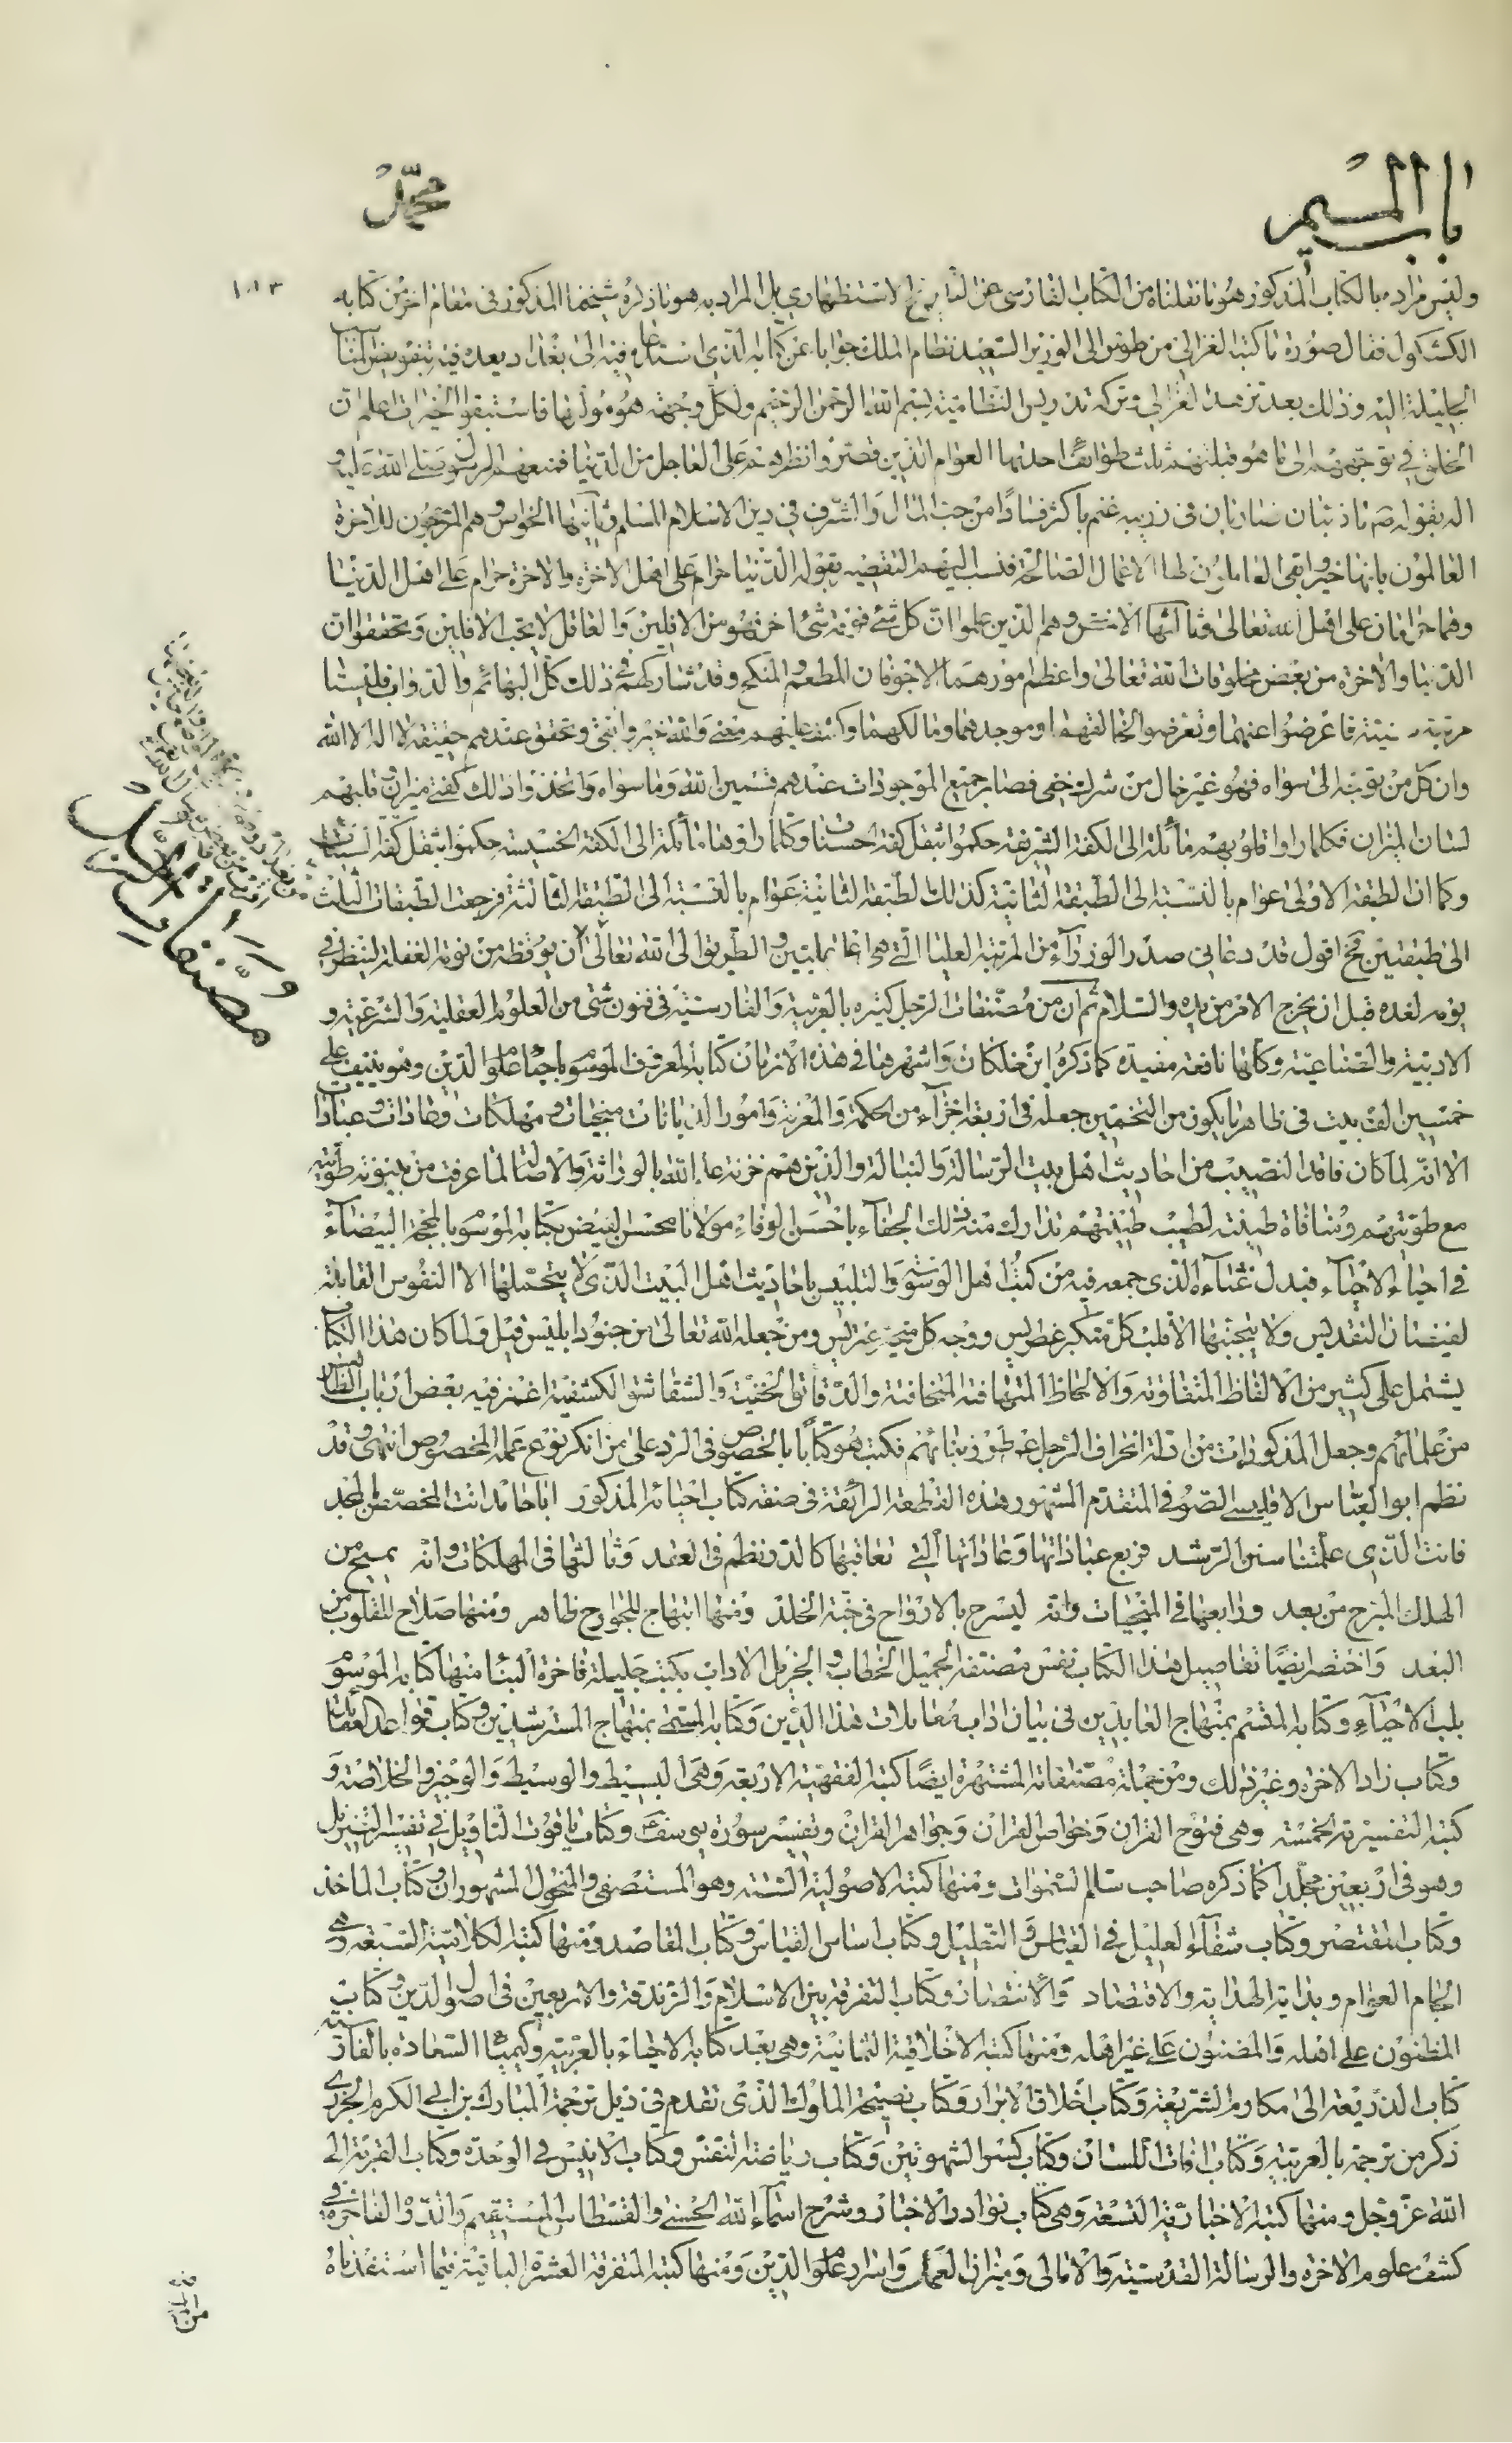 باب الميم
محمد
١٨٣
وليس مراده بالكتاب المذكور هو ما نقلناه من الكتاب الفارسى عن التاريخ الاستظهاري بل المراد به هو ما ذكره شيخنا المذكور فى مقام اخر من كتابه
الكشكول فقال صورة ما كتبه الغزالى من طوس الى الوزير السعيد نظام الملك جوابا عن كتابه الذي استدعاه فيه الى بغداد يعده فيه بتفويض المناصب
الجليلة اليه وذلك بعد تزهد الغزالي وتركه تدريس النظامية بسم الله الرحمن الرحيم ولكل وجهة هو موليها فاستبقوا الخيرات اعلم ان
الخلق في توجههم الى ما هو قبلتهم ثلث طوائف احديها العوام الذين قصروا نظرهم على العاجل من الدنيا فمنعهم الرسول صلى الله عليه و
اله بقوله ص ما ذئبان ضاريان فى زريبة غنم باكثر فسادا من حب المال والشرف في دين الاسلام المسلم وثانيها الخواص وهم المرجحون للاخرة
العالمون بانها خير وابقى العاملون لها الاعمال الصالحة فنسب اليهم التقصير بقوله الدنيا حرام على اهل الاخرة والاخرة حرام على اهل الدنيا
وهما حرامان على اهل الله تعالى وثالثها الاخص وهم الذين علموا ان كل شئ فوقه شئ اخر فهو من الافلين والعاقل لا يحب الافلين وتحققوا ان
الدنيا والاخرة من بعض مخلوقات الله تعالى واعظم امورهما الاجوفان المطعم والمنكح وقد شاركهم في ذلك كل البهائم والدواب فليستا
مرتبة سنية فاعرضوا عنهما وتعرضوا لخالقهما وموجدهما ومالكهما وكشف عليهم معنى والله خير وابقى وتحقق عندهم حقيقة لا اله الا الله
وان كل من توجه الى سواه فهو غير خال من شرك خفى فصار جميع الموجودات عندهم قسمين الله وما سواه واتخذوا ذلك كفتي ميزان وقلبهم
لسان الميزان فكلما راوا قلوبهم مائلة الى الكفة الشريفة حكموا بثقل كفة الحسنات وكلما راوها مائلة الى الكفة الخسيسة حكموا بثقل كفة السيئات
وكما ان الطبقة الاولى عوام بالنسبة الى الطبقة الثانية كذلك الطبقة الثانية عوام بالنسبة الى الطبقة الثالثة فرجعت الطبقات الثلث
الى طبقتين ح اقول قد دعانى صدر الوزراء من المرتبة العليا الى وانا ادعوه الى المرتبة العليا التي هي اعلى عليين والطريق الى الله تعالى ان يوقظه من نومة الغفلة لينظر في
يومه لغده قبل ان يخرج الامر من يده والسلام ثم ان من مصنفات الرجل كثيرة بالعربية والفارسية في فنون شتى من العلوم العقلية والشرعية و
الادبية والصناعية وكلها نافعة مفيدة كما ذكره ابن خلكان واشهرها فى هذه الازمان كتابه المعروف الموسوم باحياء علوم الدين وهو ينيف على
خمسين الف بيت فى ظاهر ما يكون من التخمين جعله فى اربعة اجزاء من الحكمة والمعرفة وامور الديانات منجيات ومهلكات وعادات وعبادات
الا انه لما كان فاقد النصيب من احاديث اهل بيت الرسالة والنبالة والذين هم خزنة علم الله بالوراثة والاصالة لما عرفت من بينونة طويته
مع طويتهم ومنافاة طينته لطيب طينتهم تدارك منه ذلك الجفاء باحسن الوفاء مولانا محسن الفيض بكتابه الموسوم بالمحجة البيضاء
فى احياء الاحياء فبدل غثاءه الذى جمعه فيه من كتب اهل الوشوشة والتلبيس باحاديث اهل البيت الذى لا يتحملها الا النفوس القابلة
لفيضان التقديس ولا يتجنبها الا قلب كل متكبر غطريس ووجه كل متحير عتريس ومن جعله الله تعالى من جنود ابليس قيل ولما كان هذا الكتاب
يشتمل على كثير من الالفاظ المتفاوتة والالحاظ المتهافتة المتخافتة والدقائق الخفية والشقاشق الكشفية اغمز فيه بعض ارباب الظاهر
من علمائهم وجعل المذكورات من ادلة انحراف الرجل عن طور نباتهم فكتب هو كتابا بالخصوص فى الرد على من انكر نوع عمله المخصوص انتهى وقد
نظم ابو العباس الاقليسى الصوفى المتقدم المشهور هذه القطعة الرائقة فى صفة كتاب احيائه المذكور ابا حامد انت المخصص بالحمد
فانت الذى علمتنا سنن الرشد فربع عباداتها وعاداتها التي تعاقبها كالدر نظم فى العقد وثالثها فى المهلكات وانه ينجى من
الهلك المبرح من بعد ورابعها فى المنجيات وانه ليسرح بالارواح فى جنة الخلد ومنها ابتهاج للجوارح ظاهر ومنها صلاح للقلوب من
البعد واختصر ايضا تفاصيل هذا الكتاب نفس مصنفه الجميل الخطاب والجزيل الاداب بكتب جليلة فاخرة البنا منها كتابه الموسوم
بلب الاحياء وكتابه المتسم بمنهاج العابدين فى بيان اداب معاملات هذا الدين وكتابه المسمى بمنهاج المسترشدين وكتاب قواعد العقائد
وكتاب زاد الاخرة وغير ذلك ومن جملة مصنفاته المشتهرة ايضا كتبه الفقهية الاربعة وهى البسيط والوسيط والوجيز والخلاصة و
كتبه التفسيرية الخمسة وهى فتوح القران وخواص القران وجواهر القران وتفسير سورة يوسف ع وكتاب ياقوت التاويل في تفسير التنزيل
وهو فى اربعين مجلدا كما ذكره صاحب سلم السموات ومنها كتبه الاصولية الستة وهو المستصفى والمنخول المشهوران وكتاب الماخذ
وكتاب المقتصر وكتاب شفاء العليل في القياس والتعليل وكتاب اساس القياس وكتاب المقاصد ومنها كتبه الكلامية السبعة وهى
الجام العوام وبداية الهداية والاقتصاد والانتصار وكتاب التفرقة بين الاسلام والزندقة والاربعين فى اصول الدين وكتاب
المظنون على اهله والمضنون على غير اهله ومنها كتبه الاخلاقية الثمانية وهى بعد كتابه الاحياء بالعربية وكيمياء السعادة بالفارسية
كتاب الذريعة الى مكارم الشريعة وكتاب اخلاق الابرار وكتاب نصيحة الملوك الذى تقدم فى ذيل ترجمة المبارك بن ابى الكرم الجزرى
ذكر من ترجمه بالعربية وكتاب افات اللسان وكتاب كسر الشهوتين وكتاب رياضة النفس وكتاب الانيس في الوحدة وكتاب القربة الى
الله عز وجل ومنها كتبه الاخبارية التسعة وهى كتاب نوادر الاخبار وشرح اسماء الله الحسنى والقسطاس المستقيم والدرة الفاخرة في
كشف علوم الاخرة والرسالة القدسية والامالى وميزان العمل واسرار علوم الدين ومنها كتبه المتفرقة العشرة الباقية فيما استفدناه